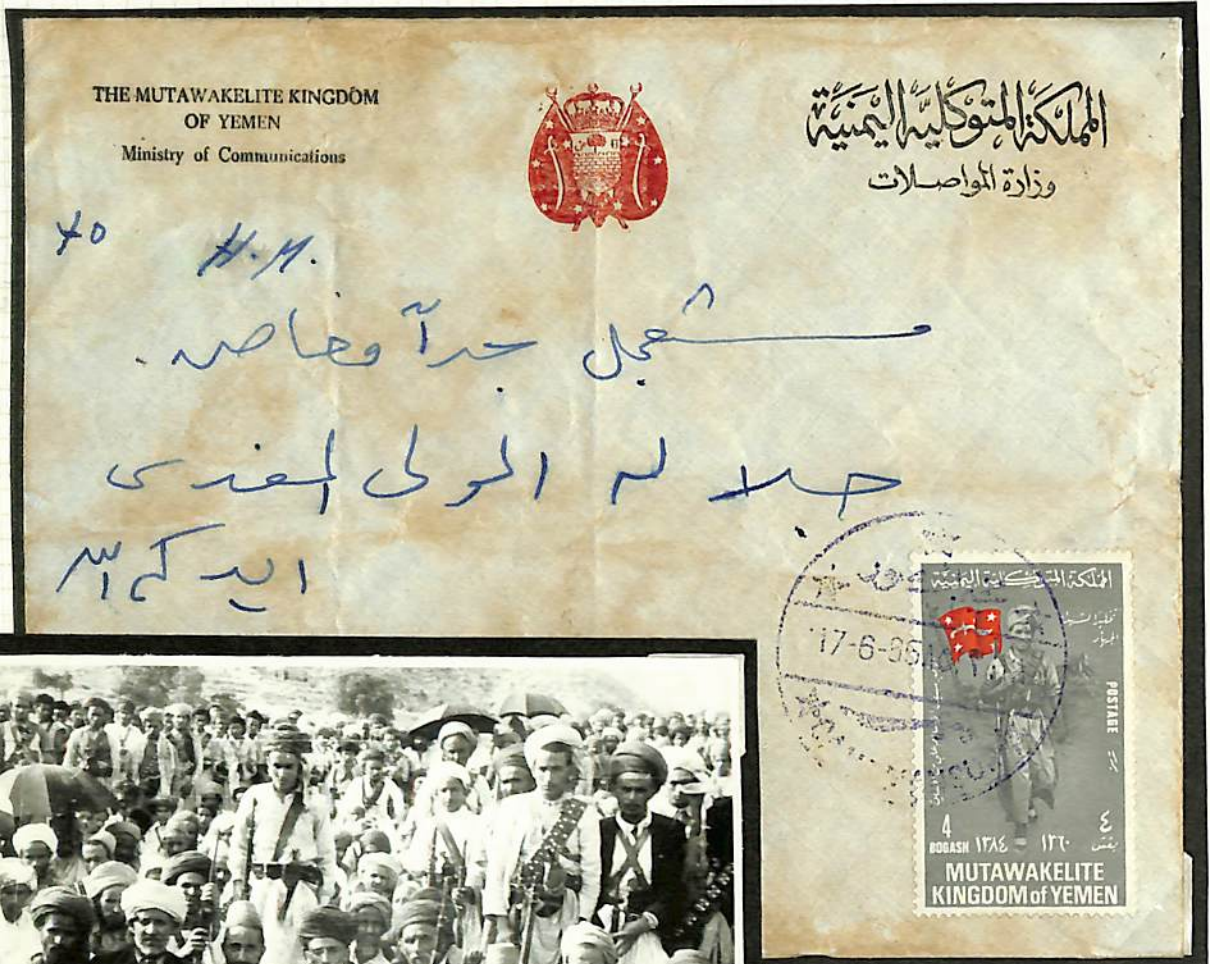 THE MUTAWAKELITE KINGDOM
OF YEMEN
Ministry of Communications
المملكة المتوكلية اليمنية
وزارة المواصلات
H.M.
مستعجل جداً وخاص.
جلالة المولى المفدى
ايدكم الله
17-6-
المملكة المتوكلية اليمنية
POSTAGE
4
BOGASH ١٣٨٤ ١٣٦٠
٤
بقش
MUTAWAKELITE
KINGDOM of YEMEN